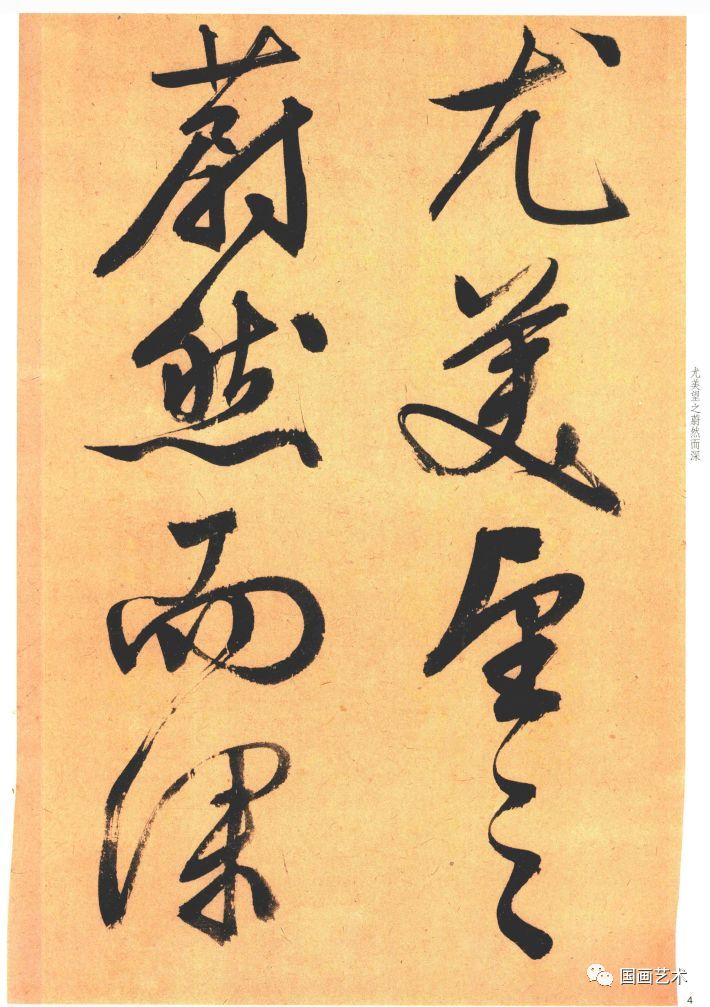 尤美望之
蔚然而深
尤美望之蔚然而深
国画艺术
4